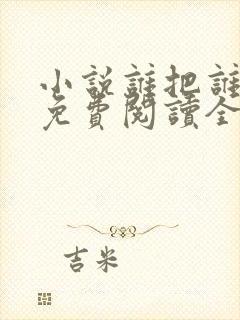 小說誰把誰
免費閱讀全
吉米